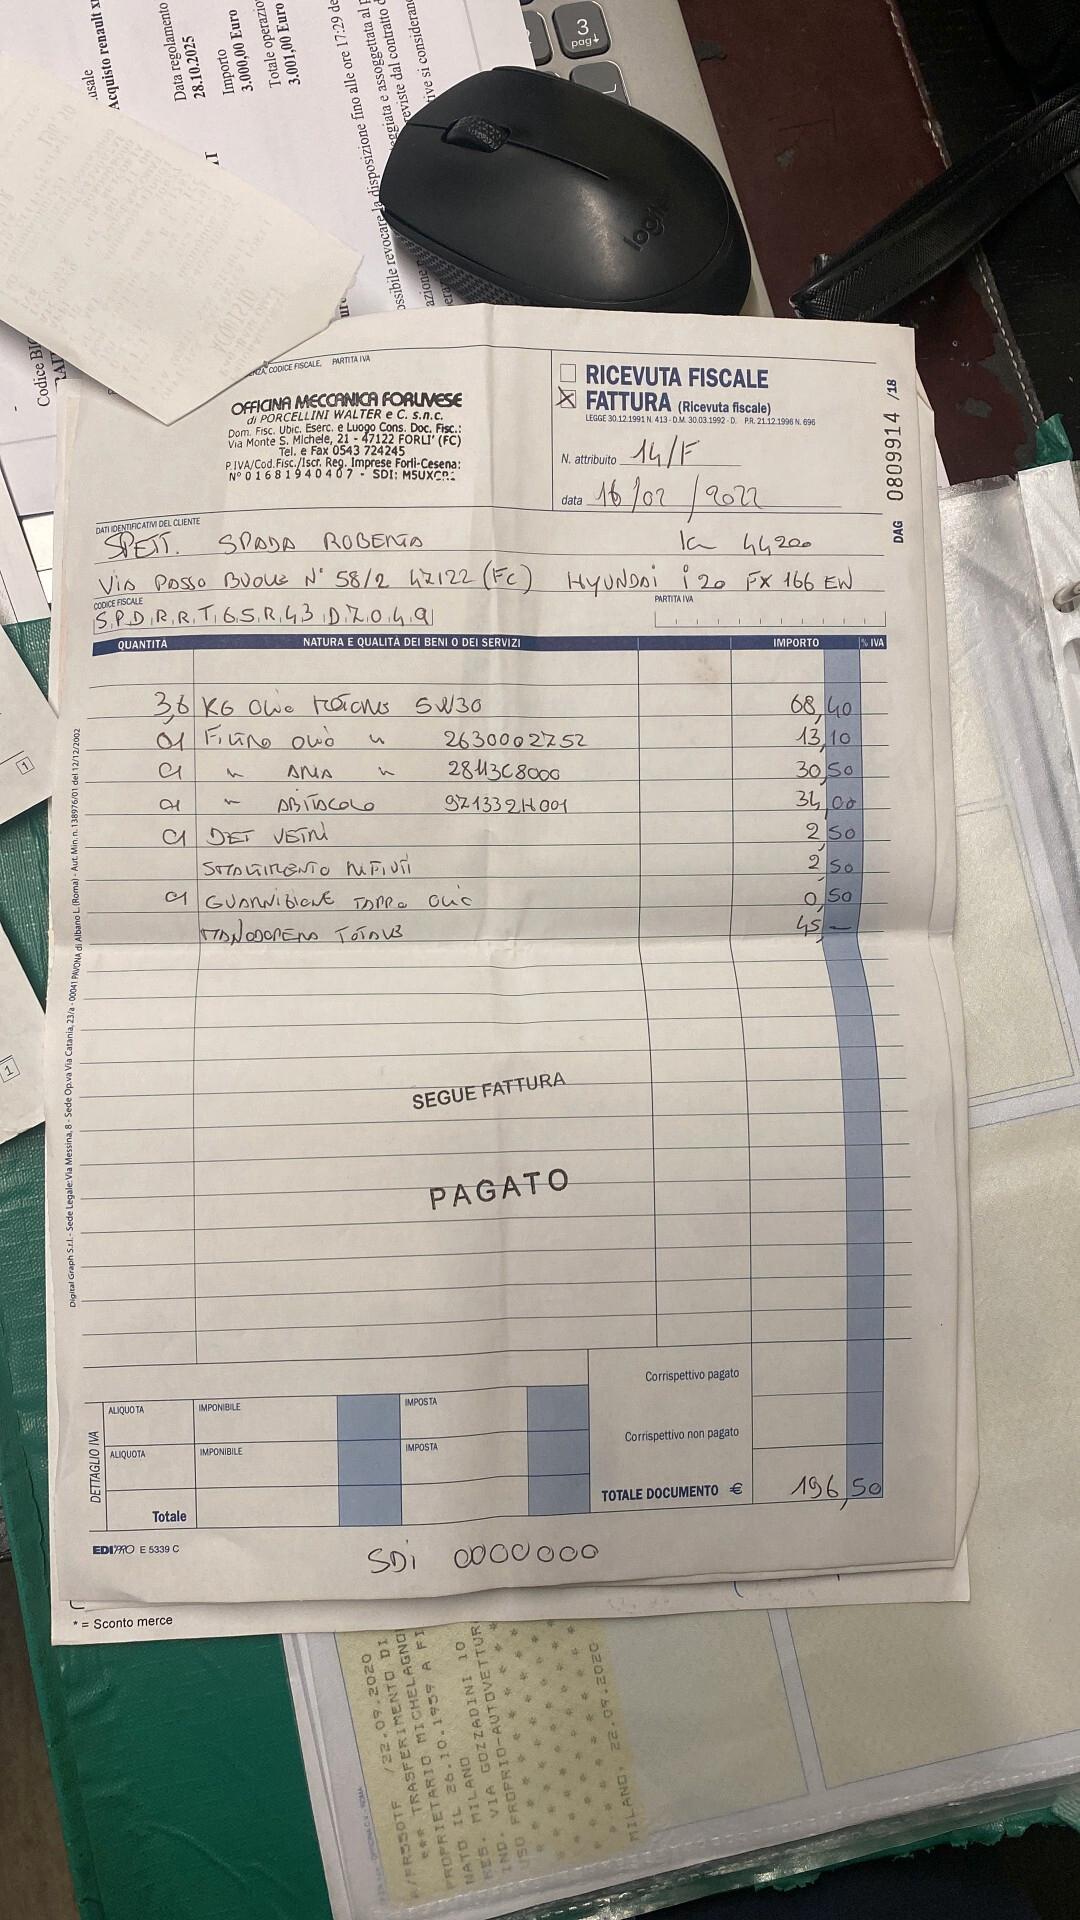 3
pag↓
logi
Acquisto renault
Data regolamento
28.10.2025
Importo
3.000,00 Euro
Totale operazio
3.001,00 Euro
disposizione fino alle ore 17:29
ossibile revocare la
Codice BIC
CODICE FISCALE, PARTITA IVA
OFFICINA MECCANICA FORLIVESE
di PORCELLINI WALTER e C. s.n.c.
Dom. Fisc. Ubic. Eserc. e Luogo Cons. Doc. Fisc.:
Via Monte S. Michele, 21 - 47122 FORLI' (FC)
Tel. e Fax 0543 724245
P.IVA/Cod.Fisc./Iscr. Reg. Imprese Forlì-Cesena:
N° 01681940407 - SDI:
RICEVUTA FISCALE
X FATTURA (Ricevuta fiscale)
LEGGE 30.12.1991 N. 413 - D.M. 30.03.1992 - D. P.R. 21.12.1996 N. 696
N. attribuito 14/F
data 16/02/2022
DAG 0809914 /18
DATI IDENTIFICATIVI DEL CLIENTE
SPETT. SPADA ROBERTA Km 44200
VIA PASSO BUOLE N° 58/2 47122 (FC) HYUNDAI i20 FX 166 EW
CODICE FISCALE
SPDRRT65R43D704Q
PARTITA IVA
QUANTITÀ NATURA E QUALITÀ DEI BENI O DEI SERVIZI IMPORTO % IVA
3,6 KG OLIO MOTORE 5W30 68,40
01 FILTRO OLIO " 2630002752 13,10
01 " ARIA " 28113C8000 30,50
01 " ABITACOLO 971332H001 34,00
01 DET VETRI 2,50
SMALTIMENTO RIFIUTI 2,50
01 GUARNIZIONE TAPPO OLIO 0,50
MANODOPERA TOTALE 45,—
SEGUE FATTURA
PAGATO
Digital Graph S.r.l. - Sede Legale: Via Messina, 8 - Sede Op.va Via Catania, 23/a - 00041 PAVONA di Albano L. (Roma) - Aut. Min. n. 138976/01 del 12/12/2002
Corrispettivo pagato
Corrispettivo non pagato
DETTAGLIO IVA
ALIQUOTA IMPONIBILE IMPOSTA
ALIQUOTA IMPONIBILE IMPOSTA
Totale
TOTALE DOCUMENTO € 196,50
EDIPRO E 5339 C
SDI 0000000
* = Sconto merce
1
1
/22.09.2020
*** TRASFERIMENTO DI
PROPRIETARIO MICHELAGNO
NATO IL 26.10.1959 A FI
RES. MILANO
VIA GOZZADINI 10
USO PROPRIO-AUTOVETTUR
MILANO, 22.09.2020